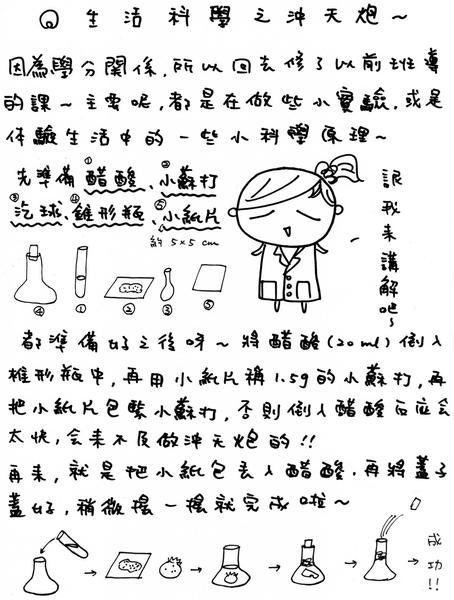 ◎ 生活科學之沖天炮～
因為學分關係，所以回去修了以前班導
的課～主要呢，都是在做些小實驗，或是
体驗生活中的一些小科學原理～
先準備①醋酸、②小蘇打
③汽球、④錐形瓶、⑤小紙片
約 5×5 cm
讓我來講解吧～
④ ① ② ③ ⑤
都準備好之後呀～將醋酸(20ml)倒入
椎形瓶中，再用小紙片稱1.5g的小蘇打，再
把小紙片包緊小蘇打，否則倒入醋酸反應會
太快，會來不及做沖天炮的!!
再來，就是把小紙包丟入醋酸，再將蓋子
蓋好，稍微搖一搖就完成啦～
成功!!